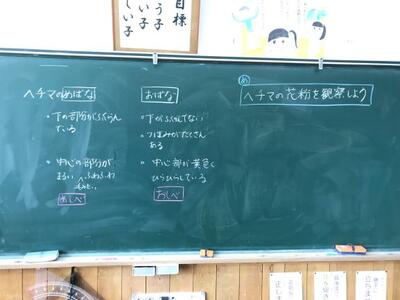 目標
う子
しい子
ヘチマのめばな
・下の部分がふくらん
でいる
・中心の部分が
まるい
ふわふわ
めしべ
おばな
・下がふくらんでない
・つぼみがたくさん
ある
・中心部が黄色く
ひらひらしている
おしべ
め
ヘチマの花粉を観察しよう